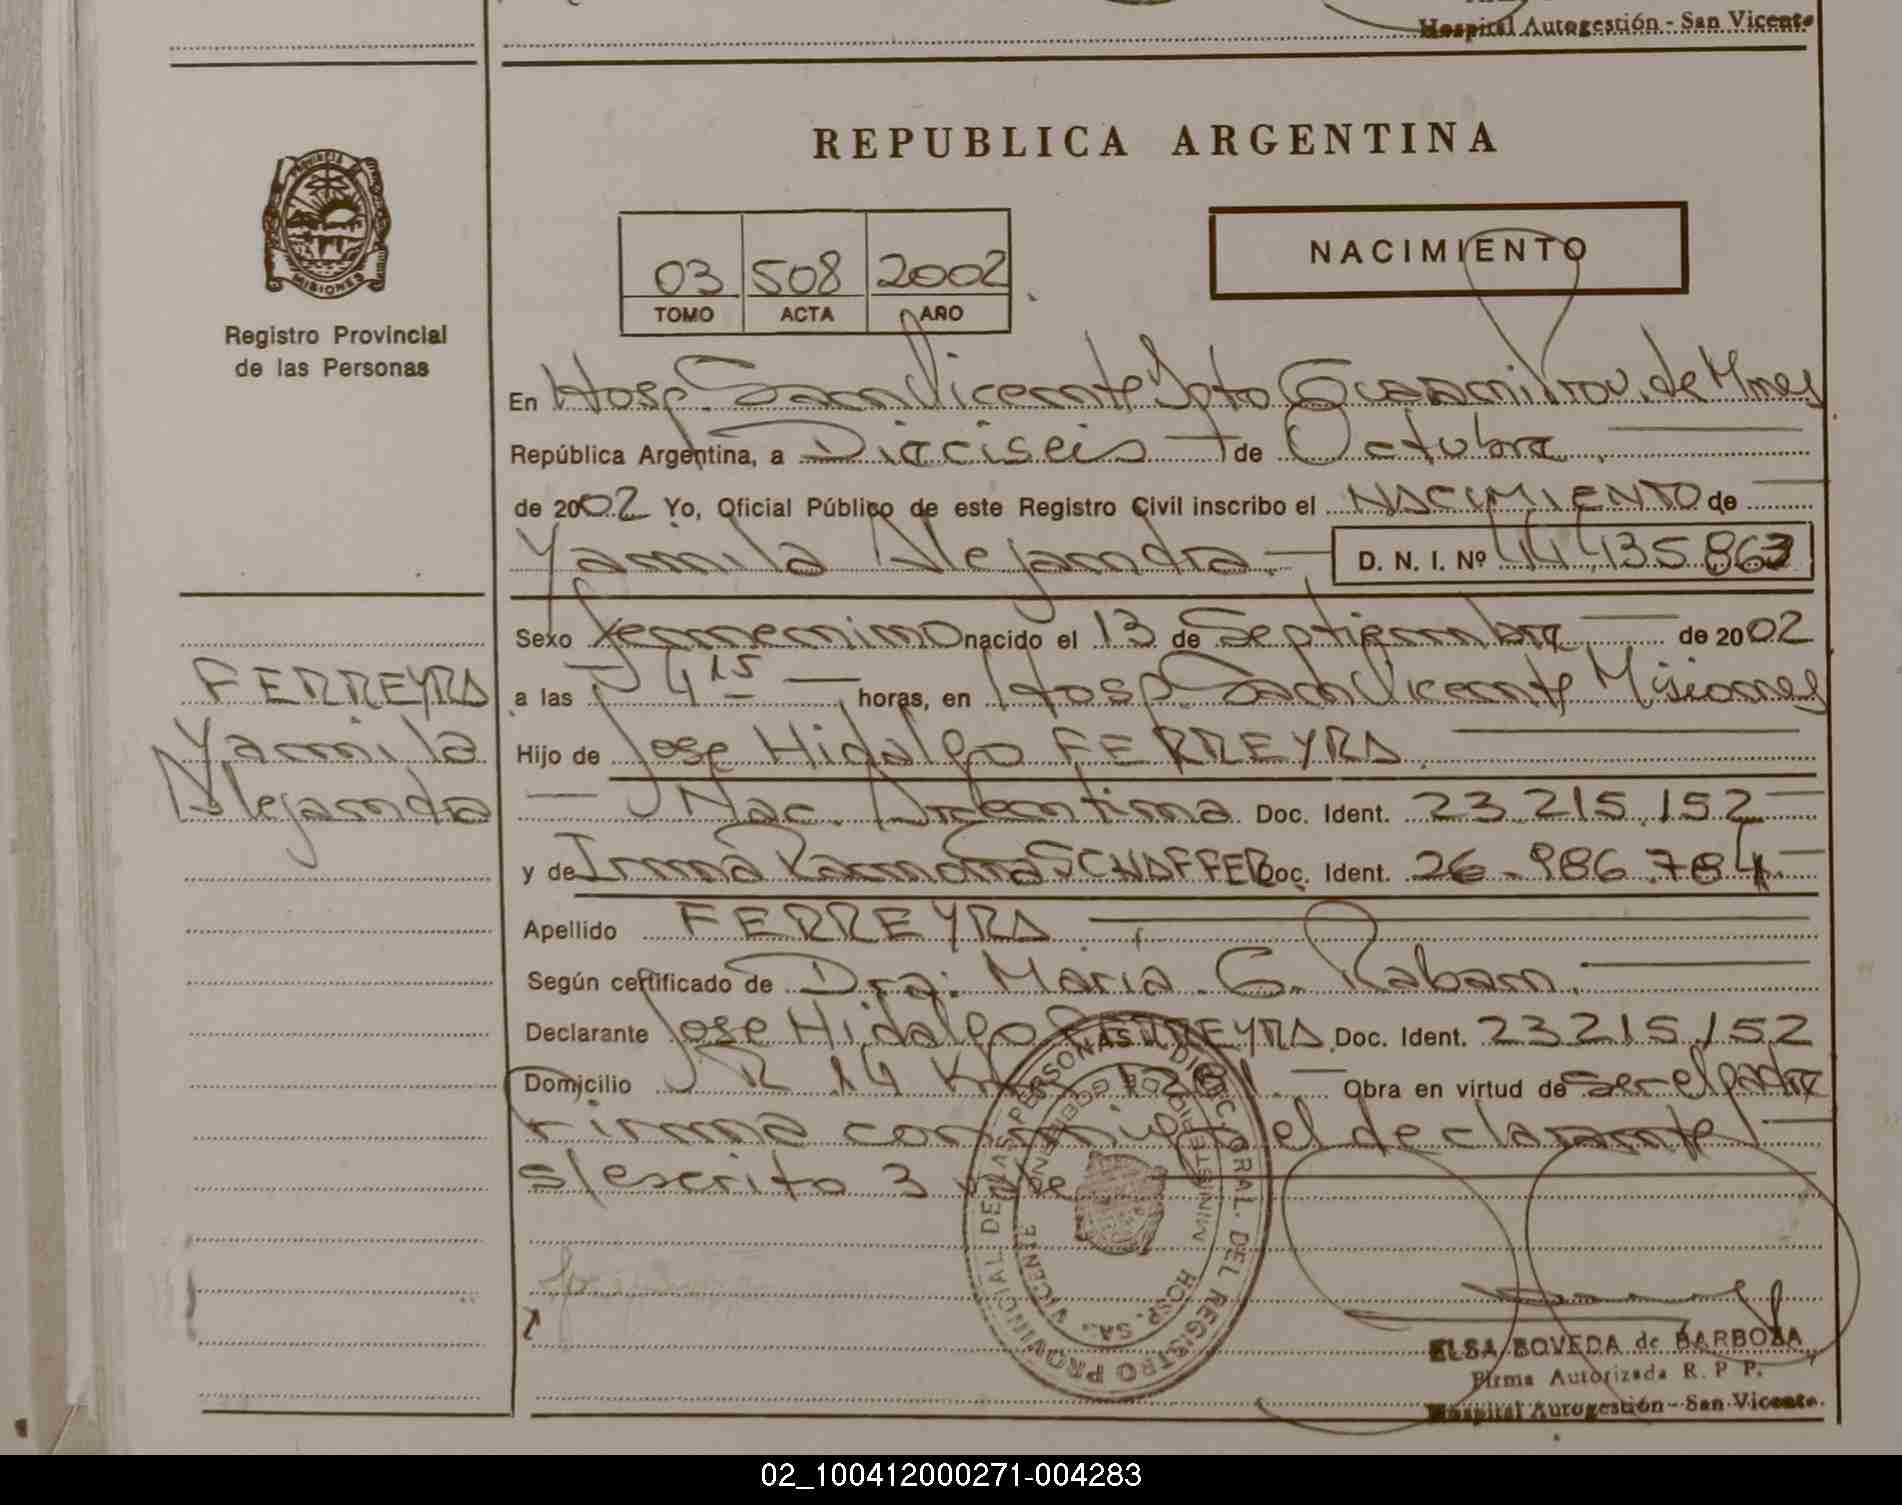 Hospital Autogestión - San Vicente
REPUBLICA ARGENTINA
PROVINCIA
MISIONES
Registro Provincial
de las Personas
03 508 2002
TOMO ACTA AÑO
NACIMIENTO
En Hosp. San Vicente Dpto Guaraní Prov. de Mnes
República Argentina, a Dieciseis de Octubre
de 2002 Yo, Oficial Público de este Registro Civil inscribo el NACIMIENTO de
Yamila Alejandra. D. N. I. Nº 44.435.863
FERREYRA
Yamila
Alejandra
Sexo Femenino nacido el 13 de Septiembre de 2002
a las 4 15 horas, en Hosp San Vicente Misiones
Hijo de Jose Hidalgo FERREYRA
Nac. Argentina Doc. Ident. 23.215.152
y de Irma Ramona SCHAFFER Doc. Ident. 26.986.784
Apellido FERREYRA
Según certificado de Dra. Maria G. Raban.
Declarante Jose Hidalgo FERREYRA Doc. Ident. 23215152
Domicilio R 14 Km Obra en virtud de ser el padre
Firma conmigo el declarante
s/escrito 3 vale
REGISTRO PROVINCIAL DE LAS PERSONAS
DIREC. GRAL. DEL
MINISTERIO DE GOBIERNO
HOSP. SA. VICENTE
ELSA BOVEDA de BARBOZA
Firma Autorizada R. P P.
Hospital Autogestión - San Vicente
02_100412000271-004283